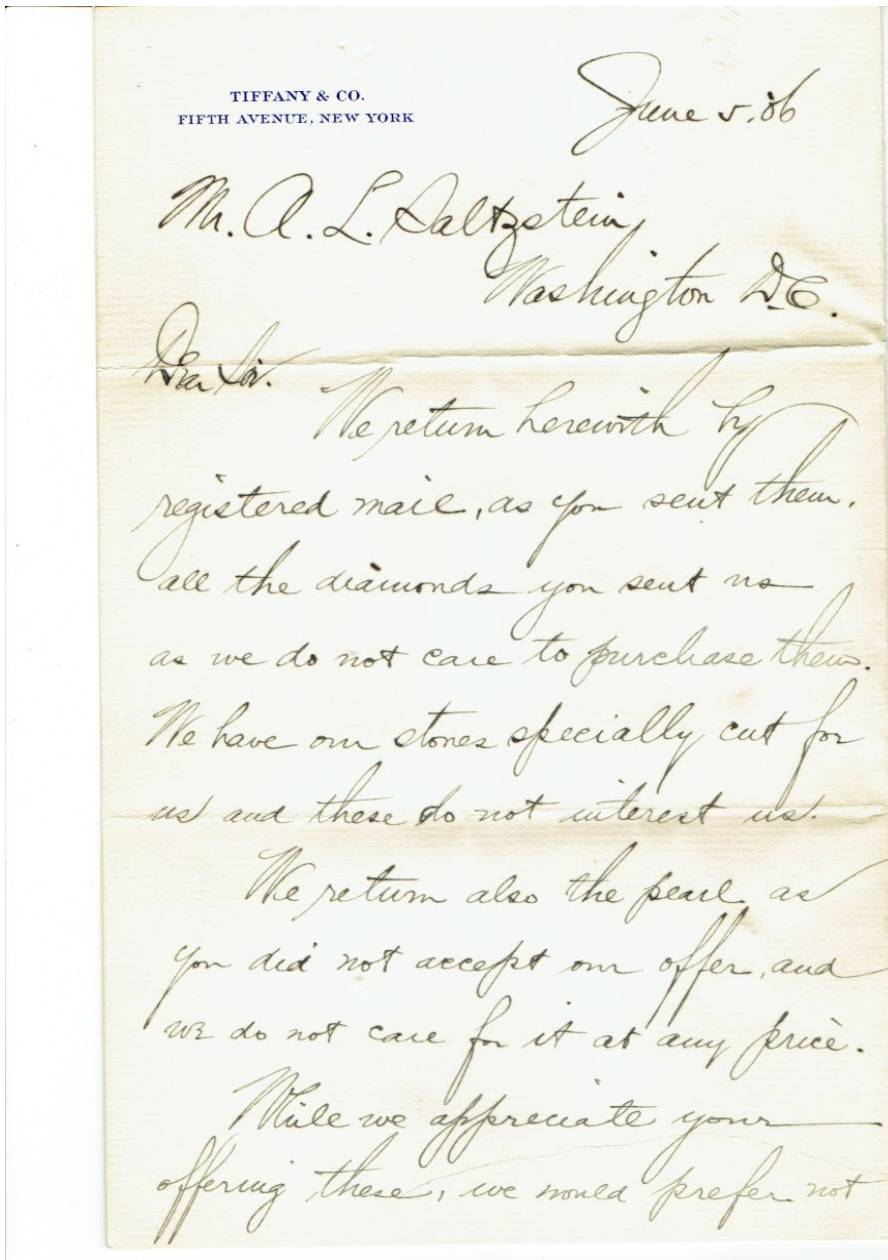 TIFFANY & CO.
FIFTH AVENUE, NEW YORK
June 5. 06
Mr. A. L. Saltzstein,
Washington D.C.
Dear Sir.
We return herewith by
registered mail, as you sent them.
all the diamonds you sent us
as we do not care to purchase them.
We have our stones specially cut for
us and these do not interest us.
We return also the pearl as
you did not accept our offer, and
we do not care for it at any price.
While we appreciate your
offering these, we would prefer not